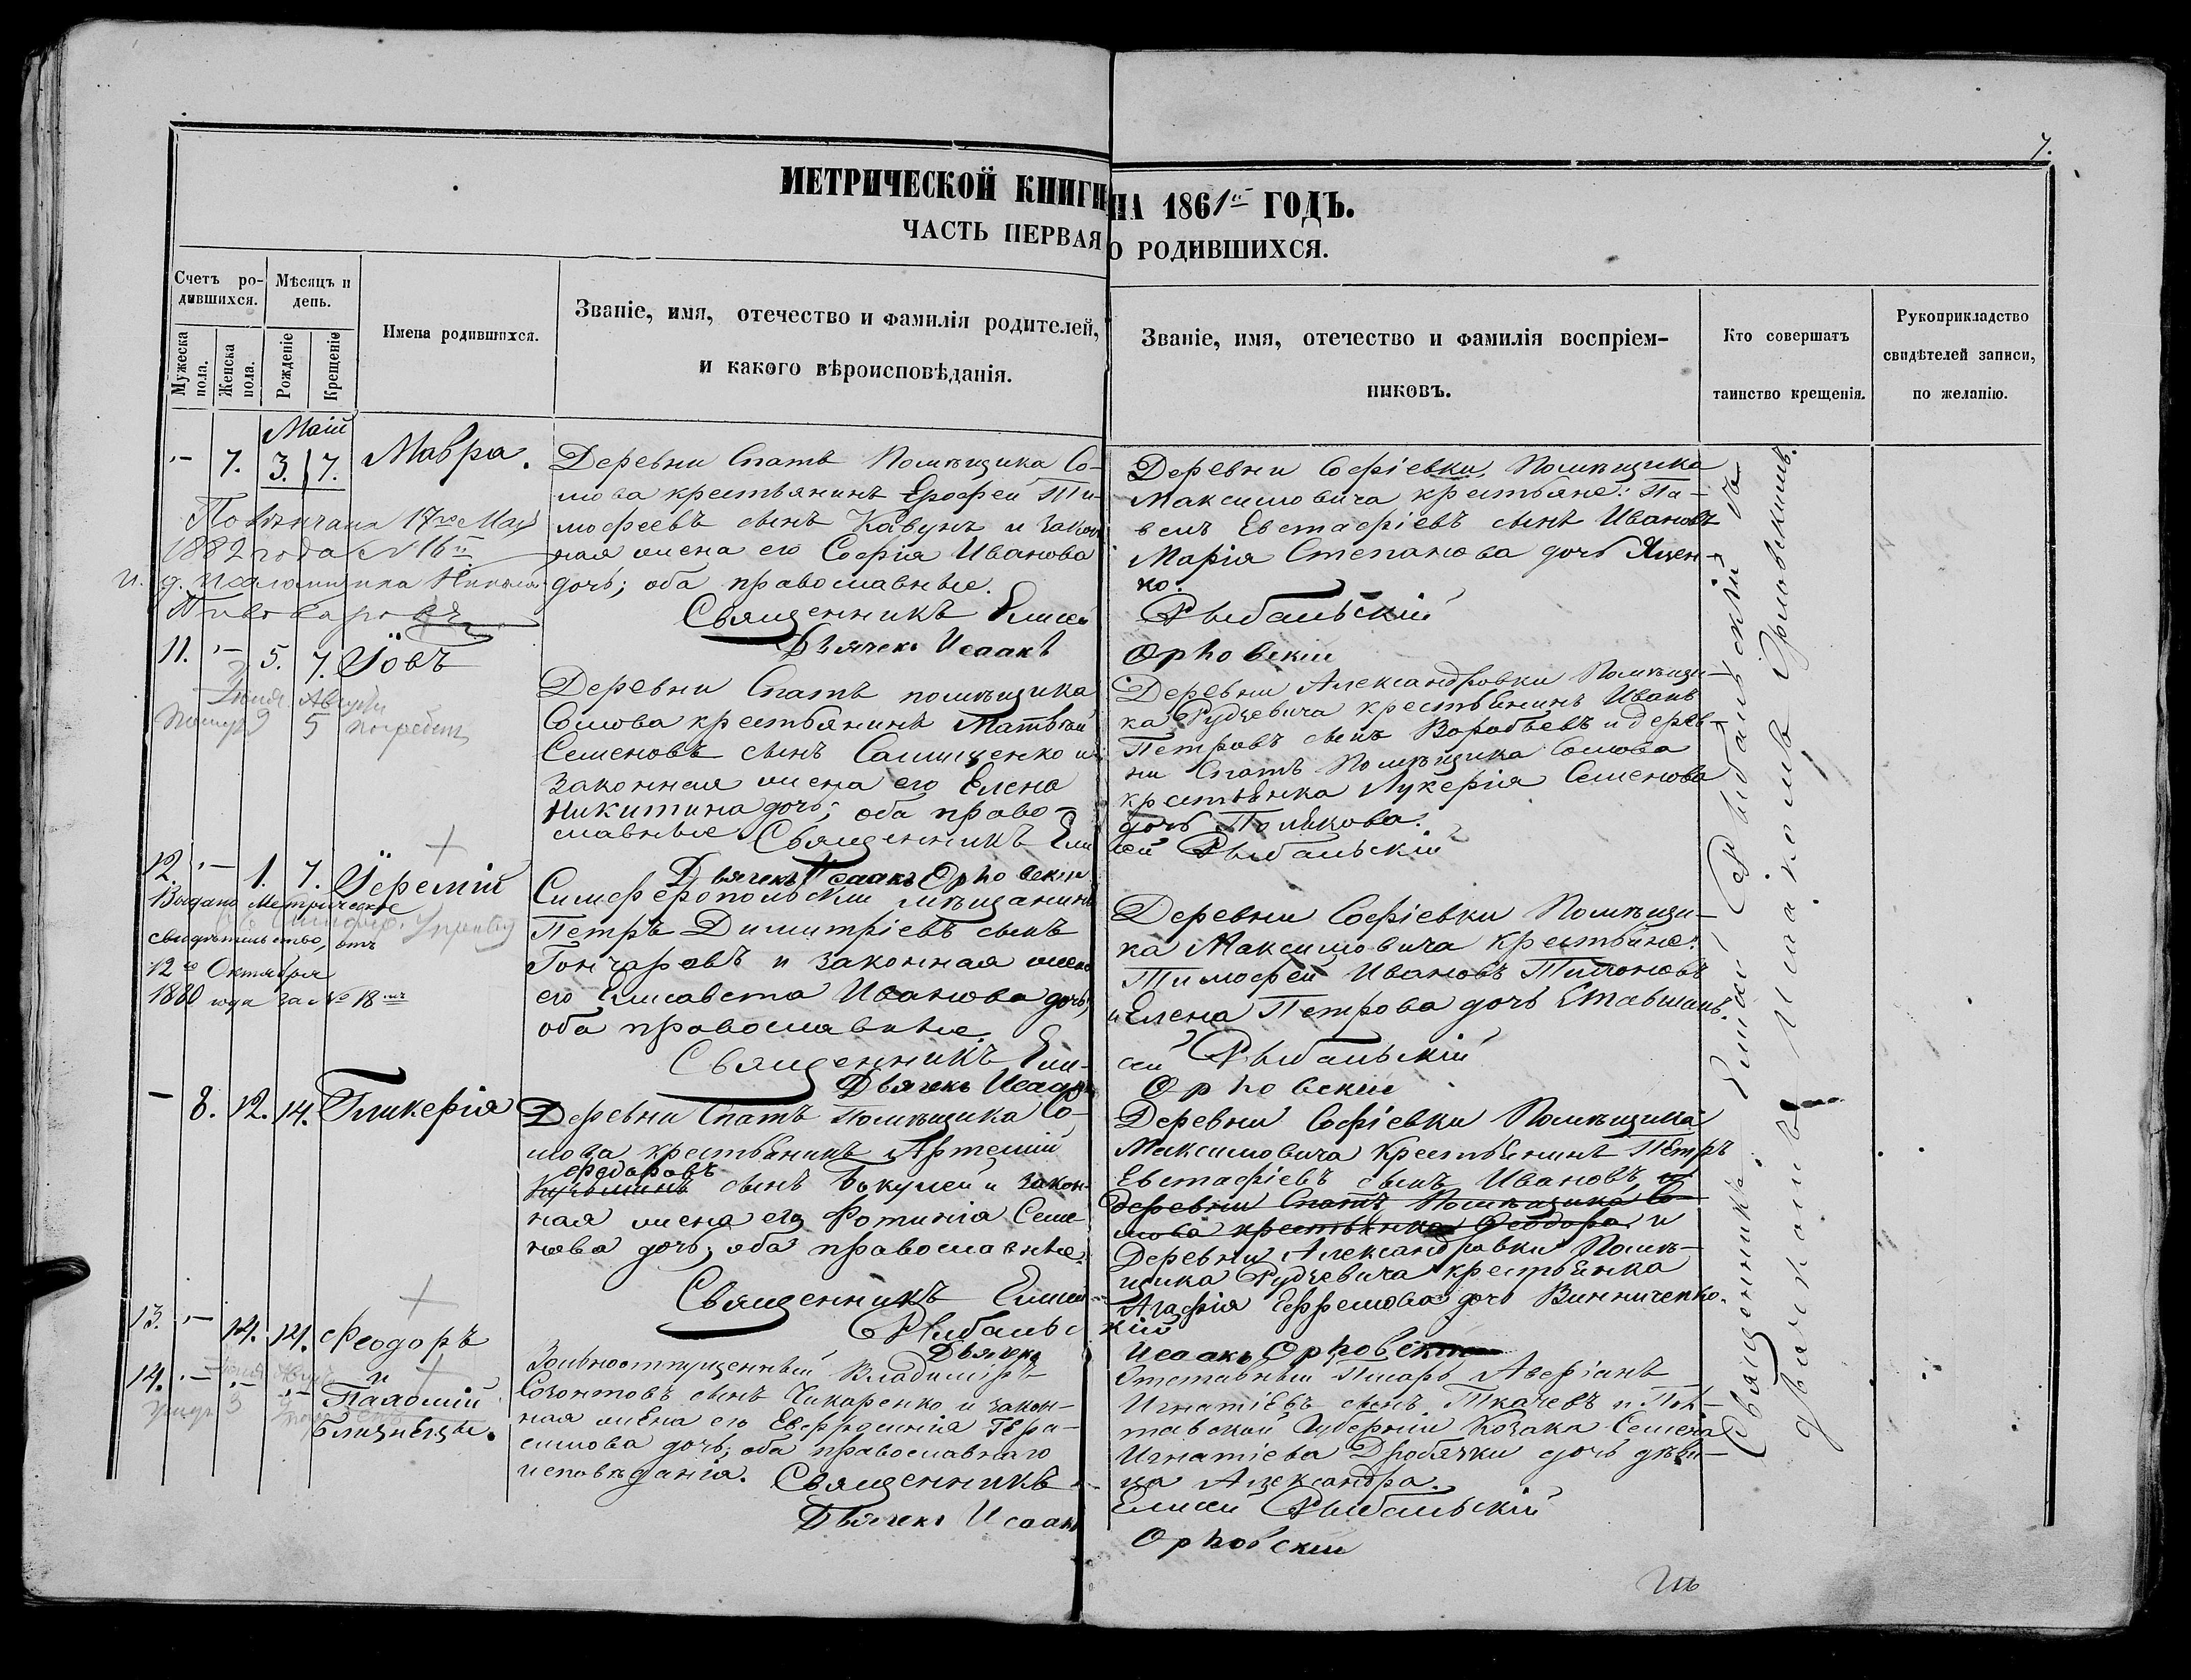 7.
МЕТРИЧЕСКОЙ КНИГИ НА 1861й ГОДЪ.
ЧАСТЬ ПЕРВАЯ О РОДИВШИХСЯ.
Счетъ родившихся.
Мужеска пола.
Женска пола.
Мѣсяцъ и день.
Рожденіе
Крещеніе
Имена родившихся.
Званіе, имя, отечество и фамилія родителей,
и какого вѣроисповѣданія.
Званіе, имя, отечество и фамилія воспріем-
никовъ.
Кто совершатъ
таинство крещенія.
Рукоприкладство
свидѣтелей записи,
по желанію.
Маій
- 7. 3. 7. Мавра.
Повѣнчана 17го Мая
1882 года № 16й
и. д. псаломщика
Пивоваровъ
Деревни Спатъ Помѣщика Со-
мова крестьянинъ Ерофей Ти-
мофеевъ сынъ Кавунъ и закон
ная жена его Софія Иванова
дочь; оба православные.
Священникъ Елисей
Дьячекъ Исаакъ
Деревни Софіевки, Помѣщика
Максимовича крестьяне: Па-
велъ Евстафіевъ сынъ Ивановъ
Марія Степанова дочь Яцен-
ко.
Рыбальскій
Орловскій
11. - 5. 7. Іовъ
Іюля Августа
5 погребенъ
Деревни Спатъ помѣщика
Сомова крестьянинъ Матвѣй
Семеновъ сынъ Самищенко и
законная жена его Елена
Никитина дочь; оба право-
славные Священникъ Ели
Дьячекъ Исаакъ Орловскій
Деревни Александровки Помѣщи-
ка Рудзевича крестьянинъ Иванъ
Петровъ сынъ Воробьевъ и дерев-
ни Спатъ Помѣщика Сомова
крестьянка Лукерія Семенова
дочь Полякова.
сей Рыбальскій
12. - 1. 7. Іеремій
Выдано Метрическое
свидѣтельство, отъ
12го Октября
1880 года за № 18мъ
Симферопольскій мѣщанинъ
Петръ Димитріевъ сынъ
Гончаровъ и законная жена
его Елисавета Иванова дочь;
оба православные.
Священникъ Ели-
Дьячекъ Исаакъ
Деревни Софіевки Помѣщи-
ка Максимовича крестьяне:
Тимофей Ивановъ
и Елена Петрова дочь
сей Рыбальскій
Орловскій
- 8. 12. 14. Гликерія
Деревни Спатъ Помѣщика Со-
мова крестьянинъ Артемій
Федоровъ
сынъ и закон-
ная жена его Фотинія Семе-
нова дочь; оба православные.
Священникъ Елисей
Рыбальс
Дьячекъ
Деревни Софіевки Помѣщика
Максимовича Крестьянинъ Петръ
Евстафіевъ сынъ Ивановъ, и
деревни Спатъ, Помѣщика Со-
мова крестьянка Феодора и
Деревни Александровки Помѣ-
щика Рудзевича крестьянка
Агафія Ефремова дочь Винниченко.
кій
Исаакъ Орловскій
13. - 14. 14. Феодоръ
и
14. - - - Палладій
близнецы.
Вольноотпущенный Владиміръ
Созонтовъ сынъ Чикаренко и закон-
ная жена его Евфросинія Гера-
симова дочь; оба православнаго
исповѣданія. Священникъ
Дьячекъ Исаакъ
Отставный Писарь Аверіанъ
Игнатіевъ сынъ Ткачевъ и Пол-
тавской Губерніи Козака Семена
Игнатіева Дробязки дочь дѣви-
ца Александра.
Елисей Рыбальскій
Орловскій
Священникъ Елисей Рыбальскій съ
дьячкомъ Исаакомъ Орловскимъ.